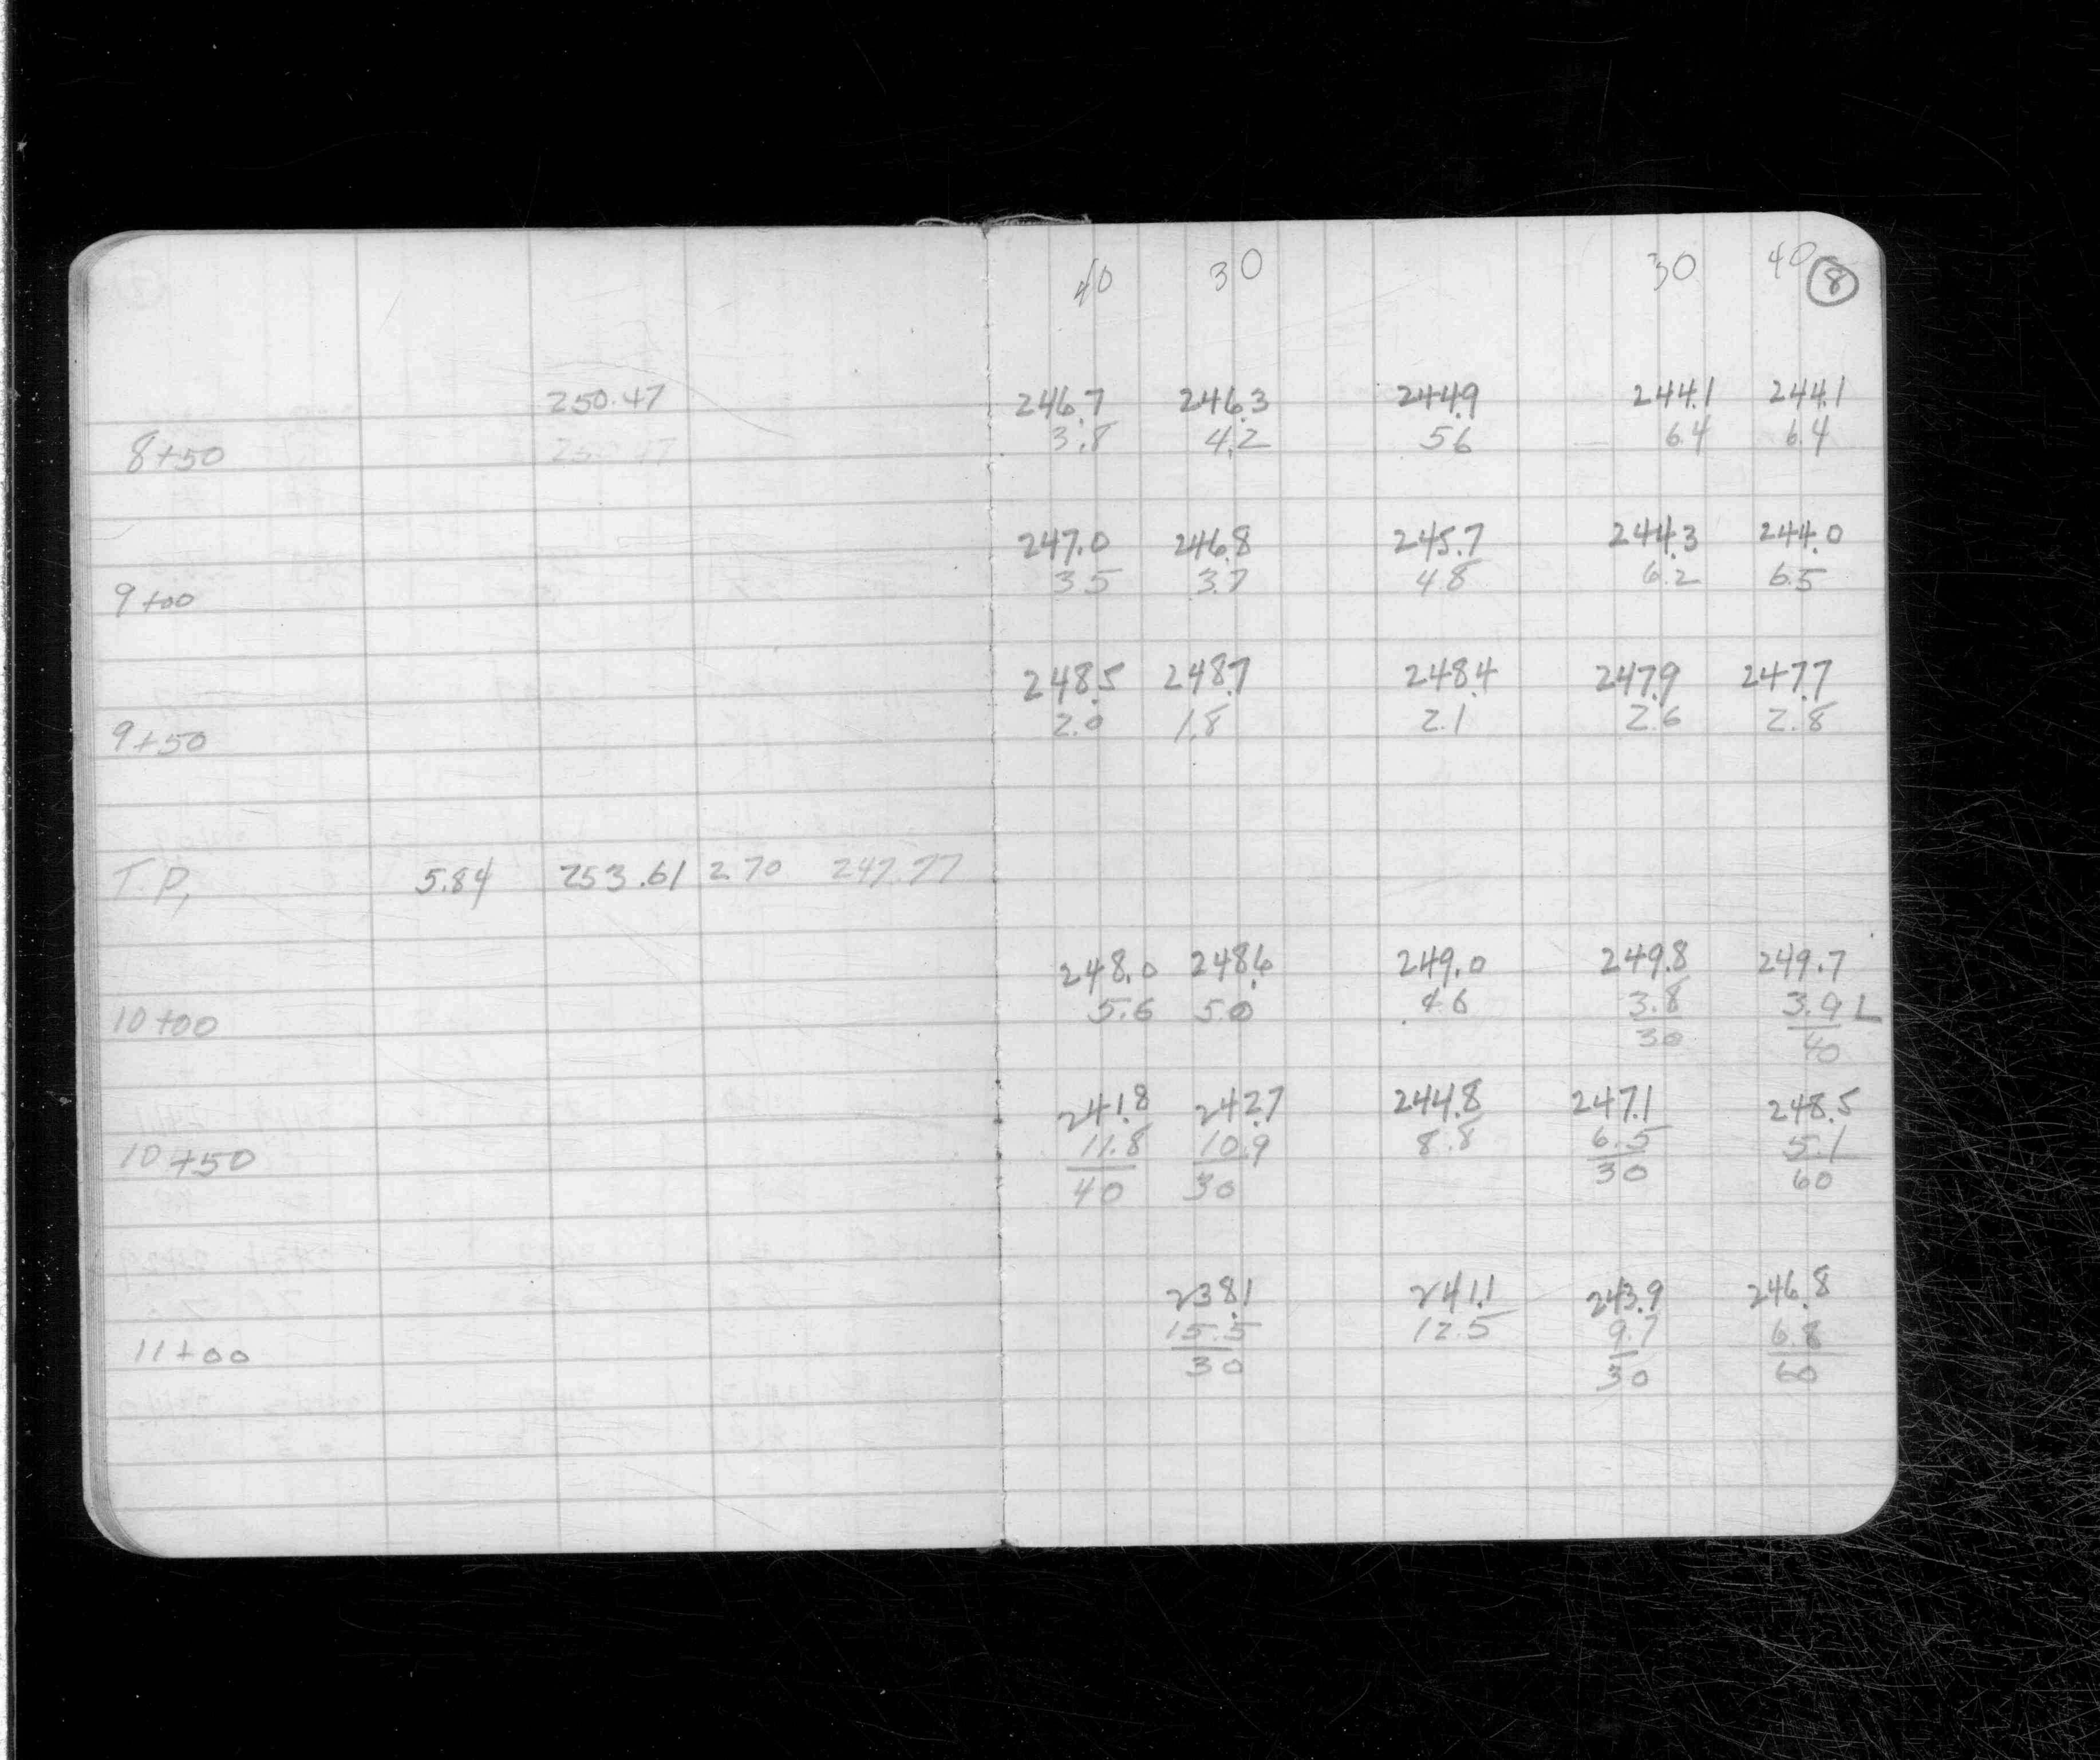 40 30 30 40 8
250.47 246.7 246.3 244.9 244.1 244.1
8+50 250.47 3.8 4.2 5.6 6.4 6.4
247.0 246.8 245.7 244.3 244.0
9+00 3.5 3.7 4.8 6.2 6.5
248.5 248.7 248.4 247.9 247.7
9+50 2.0 1.8 2.1 2.6 2.8
T.P. 5.84 253.61 2.70 247.77
248.0 248.6 249.0 249.8 249.7
10+00 5.6 5.0 4.6 3.8 3.9 L
30 40
241.8 242.7 244.8 247.1 248.5
10+50 11.8 10.9 8.8 6.5 5.1
40 30 30 60
238.1 241.1 243.9 246.8
11+00 15.5 12.5 9.7 6.8
30 30 60